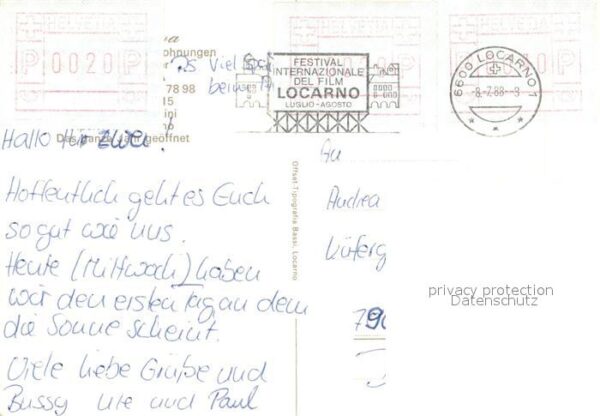 HELVETIA
P 0020 P
HELVETIA
ohnungen
PS Viel
beim
78 98
15
ini
no
Das ganze Jahr geöffnet
FESTIVAL
INTERNAZIONALE
DEL FILM
LOCARNO
LUGLIO-AGOSTO
6600 LOCARNO 1
-8.-7.88-9
Hallo Ihr zwei!
Hoffentlich geht es Euch
so gut wie uns.
Heute (Mittwoch) haben
wir den ersten Tag an dem
die Sonne scheint.
Viele liebe Grüße und
Bussy Ute und Paul
Offset-Tipografia Bassi, Locarno
An
Andrea
Küferg
privacy protection
Datenschutz